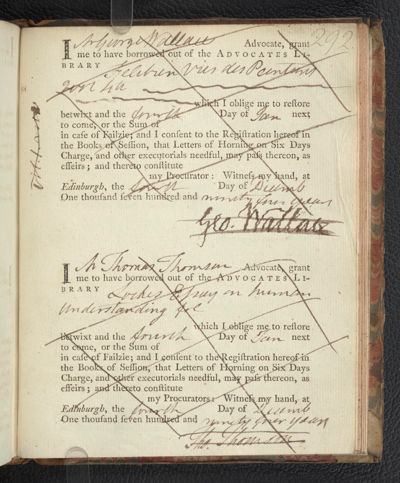 292
I Mr George Wallace Advocate, grant
me to have borrowed out of the ADVOCATES LI-
BRARY Felibien Vies des Peintres
which I oblige me to restore
betwixt and the fourth Day of Jan next
to come, or the Sum of
in case of Failzie; and I consent to the Registration hereof in
the Books of Session, that Letters of Horning on Six Days
Charge, and other executorials needful, may pass thereon, as
effeirs; and thereto constitute
my Procurator: Witness my hand, at
Edinburgh, the fourth Day of Decemb
One thousand seven hundred and ninety four years
Geo. Wallace
I Mr Thomas Thomson Advocate, grant
me to have borrowed out of the ADVOCATES LI-
BRARY Lockes Essay on human
Understanding fol
which I oblige me to restore
betwixt and the fourth Day of Jan next
to come, or the Sum of
in case of Failzie; and I consent to the Registration hereof in
the Books of Session, that Letters of Horning on Six Days
Charge, and other executorials needful, may pass thereon, as
effeirs; and thereto constitute
my Procurator: Witness my hand, at
Edinburgh, the fourth Day of Decemb
One thousand seven hundred and ninety four years
Tho. Thomson